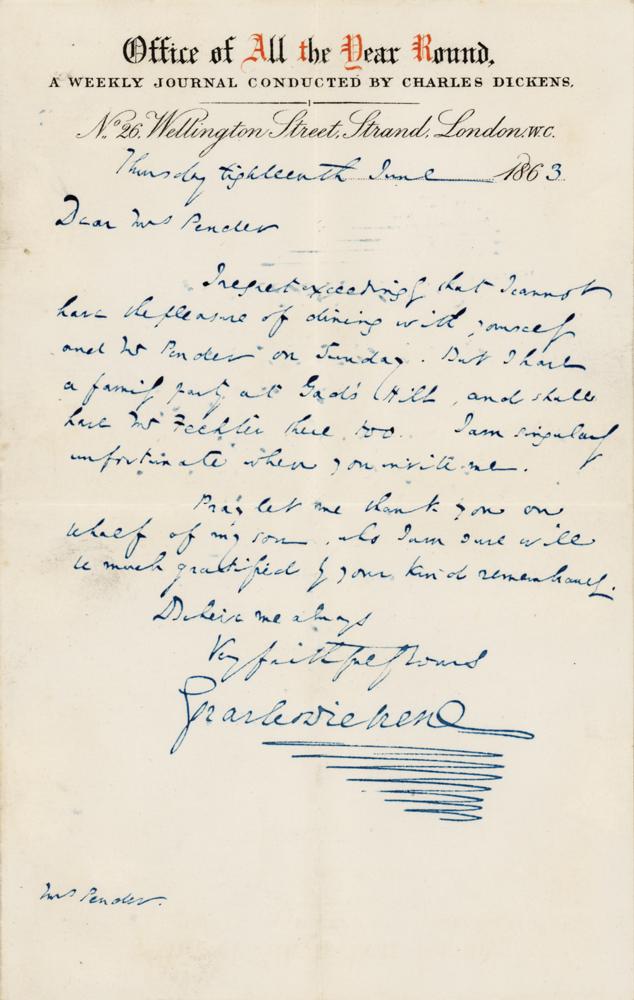 Office of All the Year Round,
A WEEKLY JOURNAL CONDUCTED BY CHARLES DICKENS.
No. 26, Wellington Street, Strand, London. W.C.
Thursday Eighteenth June 1863.
Dear Mrs Pender
I regret exceedingly that I cannot
have the pleasure of dining with yourself
and Mr Pender on Sunday. But I have
a family party at Gad's Hill, and shall
have Mr Fechter there too. I am singularly
unfortunate when you invite me.
Pray let me thank you on
behalf of my son, who I am sure will
be much gratified by your kind remembrance.
Believe me always
Very faithfully Yours
Charles Dickens
Mrs Pender.